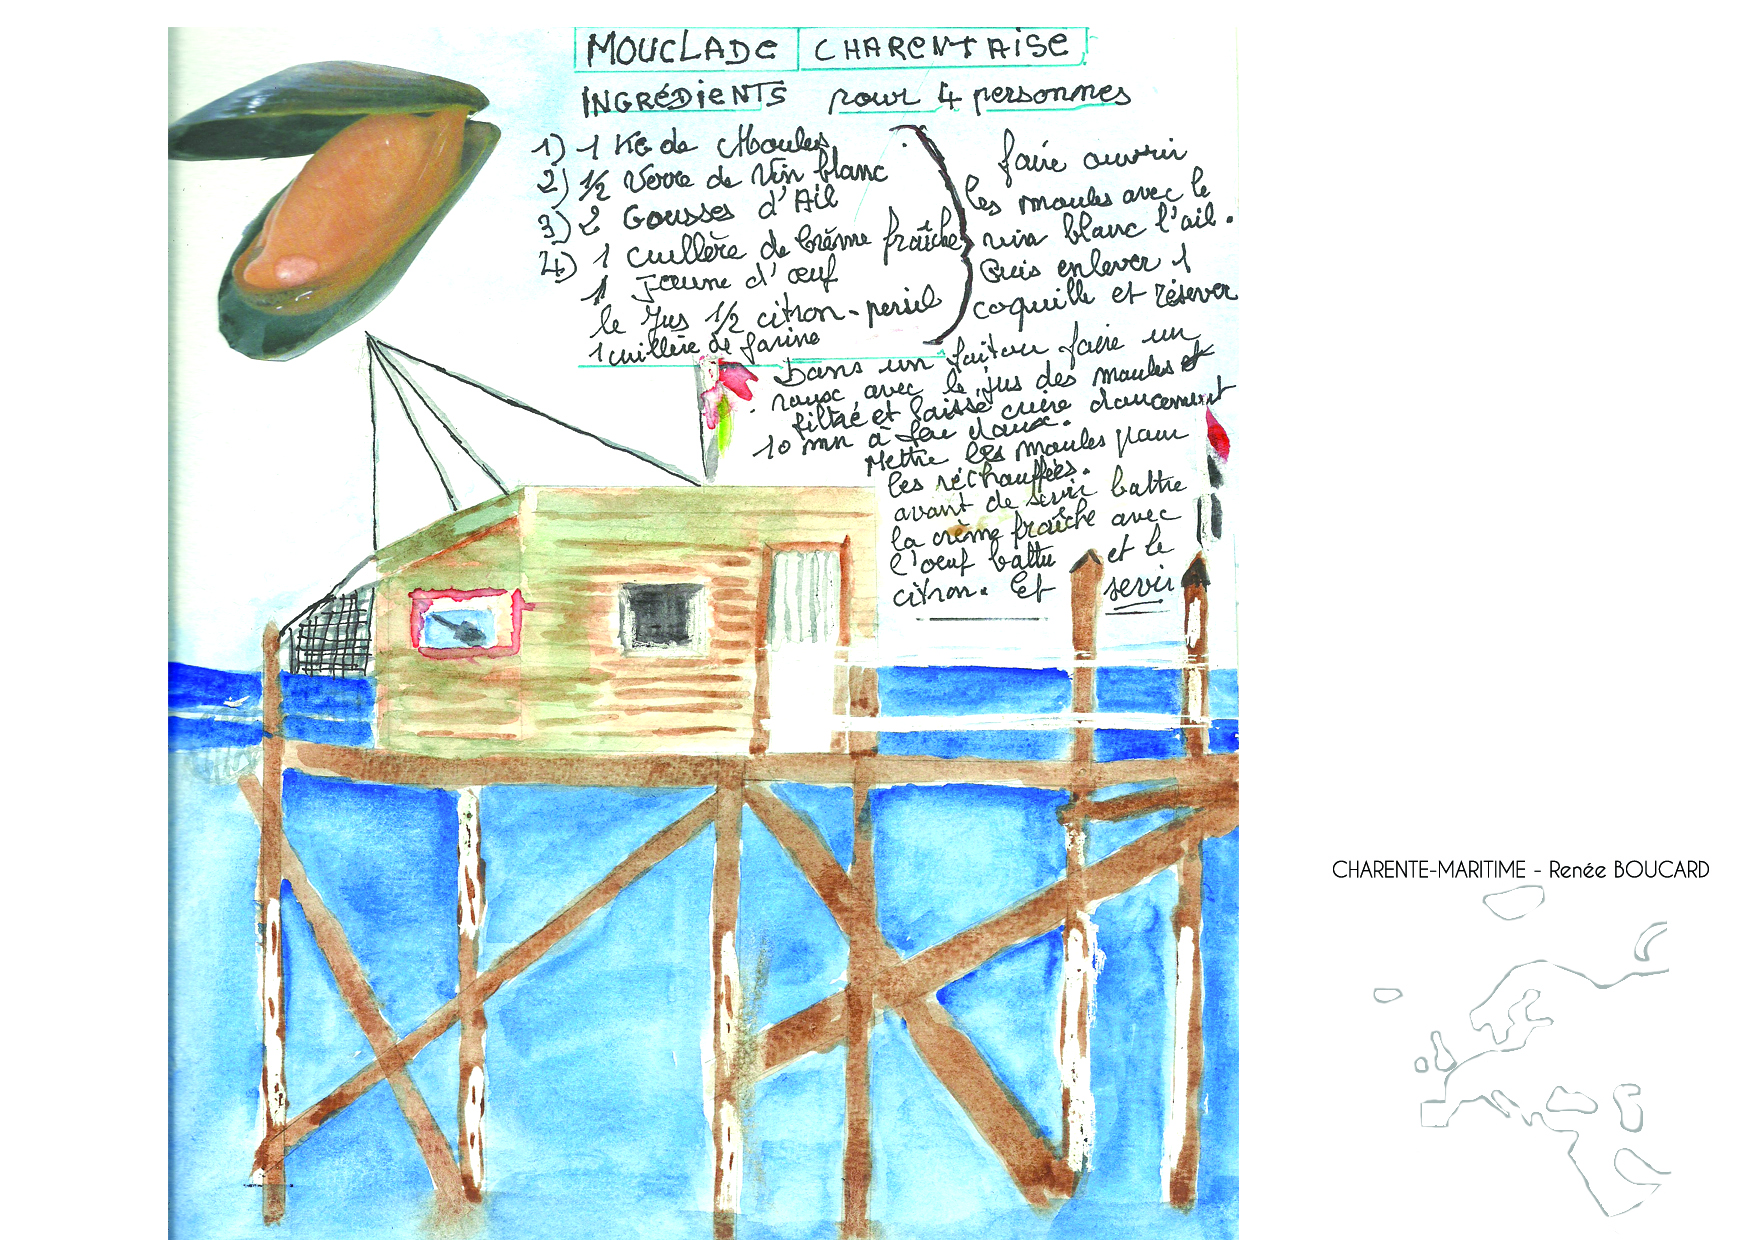 MOUCLADE CHARENTAISE
INGRÉDIENTS pour 4 personnes
1) 1 KG de Moules
2) 1/2 Verre de Vin blanc
3) 2 Gousses d'Ail
4) 1 cuillère de Crème fraîche
1 Jaune d'œuf
le Jus 1/2 citron - persil
1 cuillère de farine
faire ouvrir
les moules avec le
vin blanc l'ail.
Puis enlever 1
coquille et réserver
Dans un faitou faire un
roux avec le jus des moules et
filtré et laissé cuire doucement
10 mn à feu doux.
Mettre les moules pour
les réchauffées.
avant de servir battre
la crème fraîche avec
l'oeuf battu et le
citron. Et sevir
CHARENTE-MARITIME - Renée BOUCARD